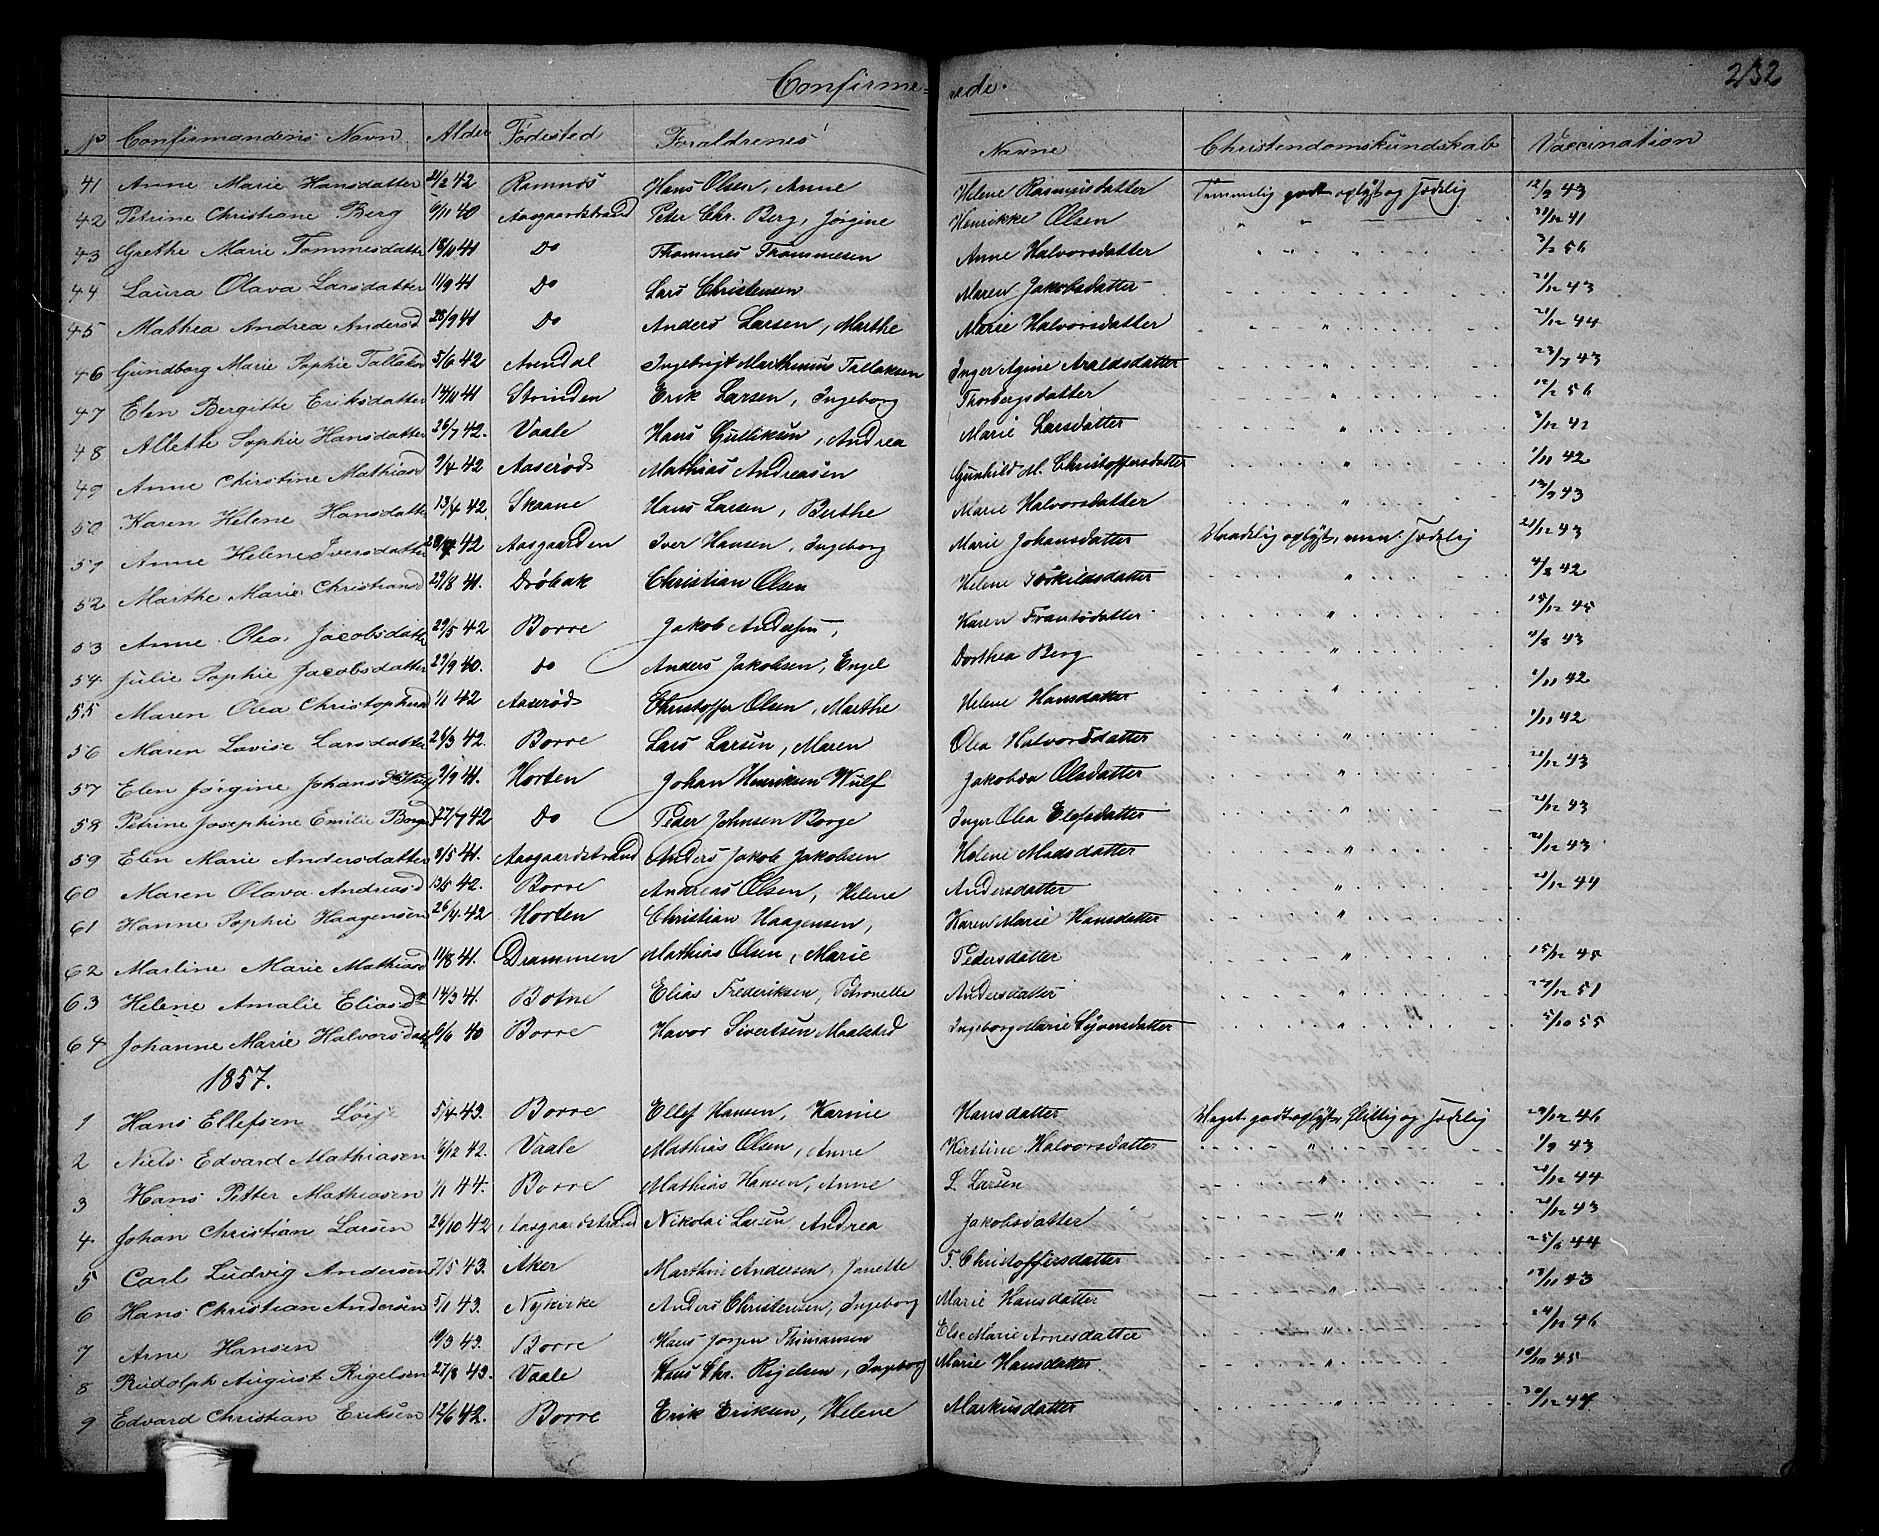 Confirme- rede. 232
No Confirmandens Navn Alder Fødested Foraldrenes Navne Christendomskundskab Vaccination
41 Anne Marie Hansdatter 21/2 42 Ramnes Hans Olsen, Anne Helene Rasmusdatter Temmelig godt oplyst og sædelig 12/9 43
42 Petrine Christiane Berg 9/11 40 Aasgaardstrand Peter Chr. Berg, Jørgine Henrikke Olsen " " 21/12 41
43 Grethe Marie Tommesdatter 18/10 41 Do Thommes Thommesen Anne Halvorsdatter " " " 3/3 56
44 Laura Olava Larsdatter 11/9 41 Do Lars Christensen Maren Jakobsdatter 21/12 43
45 Mathea Andrea Andersd 28/9 41 Do Anders Larsen, Marthe Marie Halvorsdatter " 21/12 44
46 Gundborg Marie Sophie Tallaksen 5/6 42 Arendal Ingebrigt Marthinius Tallaksen Inger Agine Araldsdatter " 23/7 43
47 Elen Bergitte Eriksdatter 14/10 41 Strinden Erik Larsen, Ingeborg Thorbergsdatter " 12/2 56
48 Allette Sophie Hansdatter 26/7 42. Vaale Hans Gulliksen, Andrea Marie Larsdatter " 3/12 42
49 Anne Christine Mathiasd 9/4 42 Aaserød Mathias Andreasen Gunhild M. Christoffersdatter " 1/11 42
50 Karen Helene Hansdatter 13/4 42. Skaane Hans Larsen, Berthe Marie Halvorsdatter " 13/7 43
51 Anne Helene Iversdatter 42 Aasgaarden Iver Hansen, Ingeborg Marie Johansdatter Maadelig oplyst, men sædelig 21/12 43
52 Marthe Marie Christiansd 29/8 41. Drøbak Christian Olsen Helene Torkildsdatter " 4/2 42
53 Anne Olea Jacobsdatter 29/5 42 Borre Jakob Andersen, Karen Frantsdatter " 15/12 45
54 Julie Sophie Jacobsdatter 29/9 40. Do Anders Jakobsen, Engel Dorthea Berg " 4/8 43
55 Maren Olea Christophersd 1/1 42 Aaserød Christoffer Olsen, Marthe Helene Hansdatter " 1/11 42
56 Maren Lovise Larsdatter 26/3 42. Borre Lars Larsen, Maren Olea Halvorsdatter " 1/11 42
57 Elen Jørgine Johansd Wulf 9/9 41. Horten Johan Henriksen Wulf Jakobea Olsdatter " 21/12 43
58 Petrine Josephine Emilie Borge 27/7 42 Do Peder Johnsen Borge Inger Olea Elefsdatter " 21/12 43
59 Elen Marie Andersdatter 3/5 41. Aasgaardstrand Anders Jakob Jakobsen Helene Madsdatter " 21/12 43
60 Maren Olava Andreasd 13/5 42. Borre Andreas Olsen, Helene Andersdatter " 21/12 44
61 Hanne Sophie Haagensen 26/4 42 Horten Christian Haagensen, Karen Marie Hansdatter "
62 Marline Marie Mathiasd 11/8 41. Drammen Mathias Olsen, Marie Pedersdatter " 15/12 45
63 Helene Amalie Eliasd 14/3 41. Botne Elias Frederiksen, Petronelle Andersdatter " 21/12 51
64 Johanne Marie Halvorsdatt 6/6 40 Borre Havor Sivertsen Maalsted Ingeborg Marie Syversdatter " 5/10 55
1857.
1 Hans Ellefsen 5/4 43. Borre Ellef Hansen, Karine Hansdatter Meget godt oplyst, flittig og sædelig 29/12 46
2 Niels Edvard Mathiasen 6/12 42. Vaale Mathias Olsen, Anne Kirstine Halvorsdatter " 1/9 43
3 Hans Petter Mathiasen 1/1 44. Borre Mathias Hansen, Anne L. Larsen " 21/12 44
4 Johan Christian Larsen 26/10 42 Aasgaardstrand Nikolai Larsen, Andrea Jakobsdatter " 21/12 43
5 Carl Ludvig Andersen 7/5 43. Aker Marthin Andersen, Janette T. Christoffersdatter " 25/6 44
6 Hans Christian Andersen 5/1 43. Nykirke Anders Christensen, Ingeborg Marie Hansdatter " 18/11 43
7 Arne Hansen 19/3 43. Borre Hans Jørgen Thomassen Else Marie Arnesdatter " 21/12 46
8 Rudolph August Rigelsen 27/8 43. Vaale Hans Chr. Rigelsen, Ingeborg Marie Hansdatter " 19/10 45
9 Edvard Christian Eriksen 12/6 42. Borre Erik Eriksen, Helene Markusdatter " 30/12 44